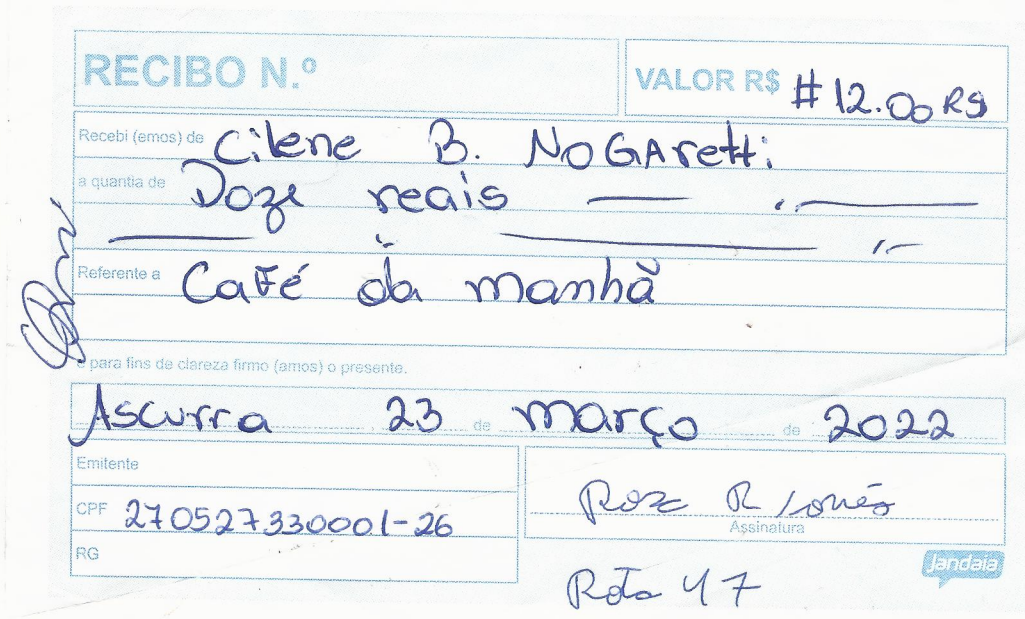 RECIBO N.º
VALOR R$ # 12.00 R$
Recebi (emos) de Cilene B. NoGAretti
a quantia de Doze reais
Referente a Café da manhã
e para fins de clareza firmo (amos) o presente.
Ascurra 23 de março de 2022
Emitente
CPF 270527330001-26
RG
Roze R
Assinatura
Jandaia
Rota 47